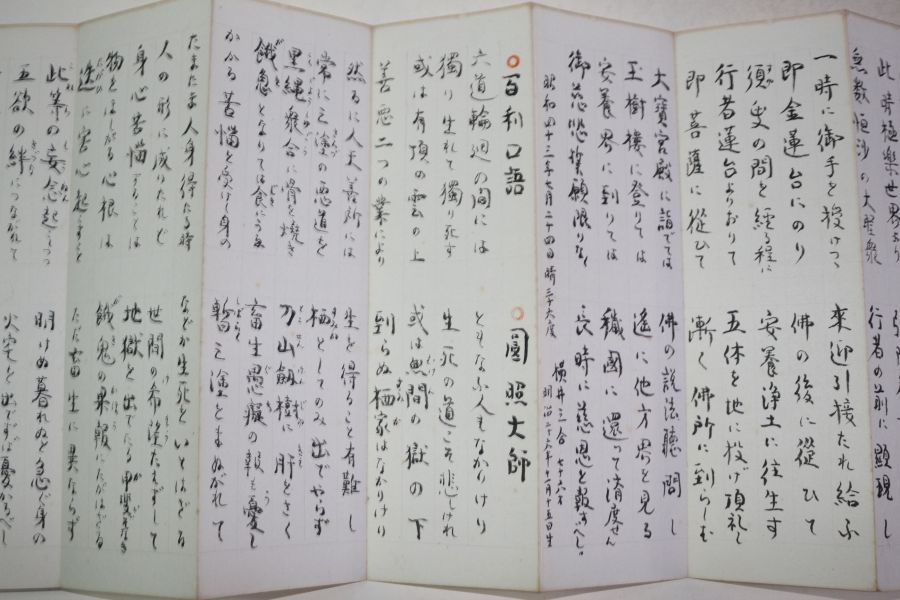 此時極楽世界より
無数恒沙の大聖衆 行者の前に顯現し
一時に御手を授けつゝ 来迎引接たれ給ふ
即金蓮台にのり 佛の後に從ひて
須臾の間を經る程に 安養浄土に往生す
行者蓮台よりおりて 五体を地に投げ頂礼し
即菩薩に從ひて 漸く佛所に到らしむ
大寶宮殿に詣でては 佛の説法聽聞し
玉樹樓に登りては 遙に他方界を見る
安養界に到りては 穢國に還って済度せん
御慈悲誓願限りなく 長時に慈恩を報ずべし。
昭和四十三年七月二十四日 晴 三十六度 横井三 七十六才 明治二十六年十一月十五日生
百利口語 圓照大師
六道輪廻の間には ともなふ人もなかりけり
獨り生れて獨り死す 生死の道こそ悲しけれ
或は有頂の雲の上 或は無間の獄の下
善悪二つの業により 到らぬ栖家はなかりけり
然るに人天善所には 生を得ること有難し
常に三塗の悪道を 栖としてのみ出でやらず
黒縄衆合に骨を焼き 刀山劔樹に肝をさく
餓鬼となりては食にうゑ 畜生愚癡の報も憂し
かかる苦惱を受けし身の 暫し三塗をまぬがれて
たまたま人身得たる時 などか生死をいとはざる
人の形に成りたれど 世間の希望たえずして
身心苦惱することは 地獄を出でたる甲斐ぞなき
物をほしがる心根は 餓鬼の果報にたがはざる
迭に害心起すこと ただ畜生に異ならず
此等の妄念起しつつ 明けぬ暮れぬと急ぐ身の
五欲の絆につながれて 火宅を出でずは憂かるべし